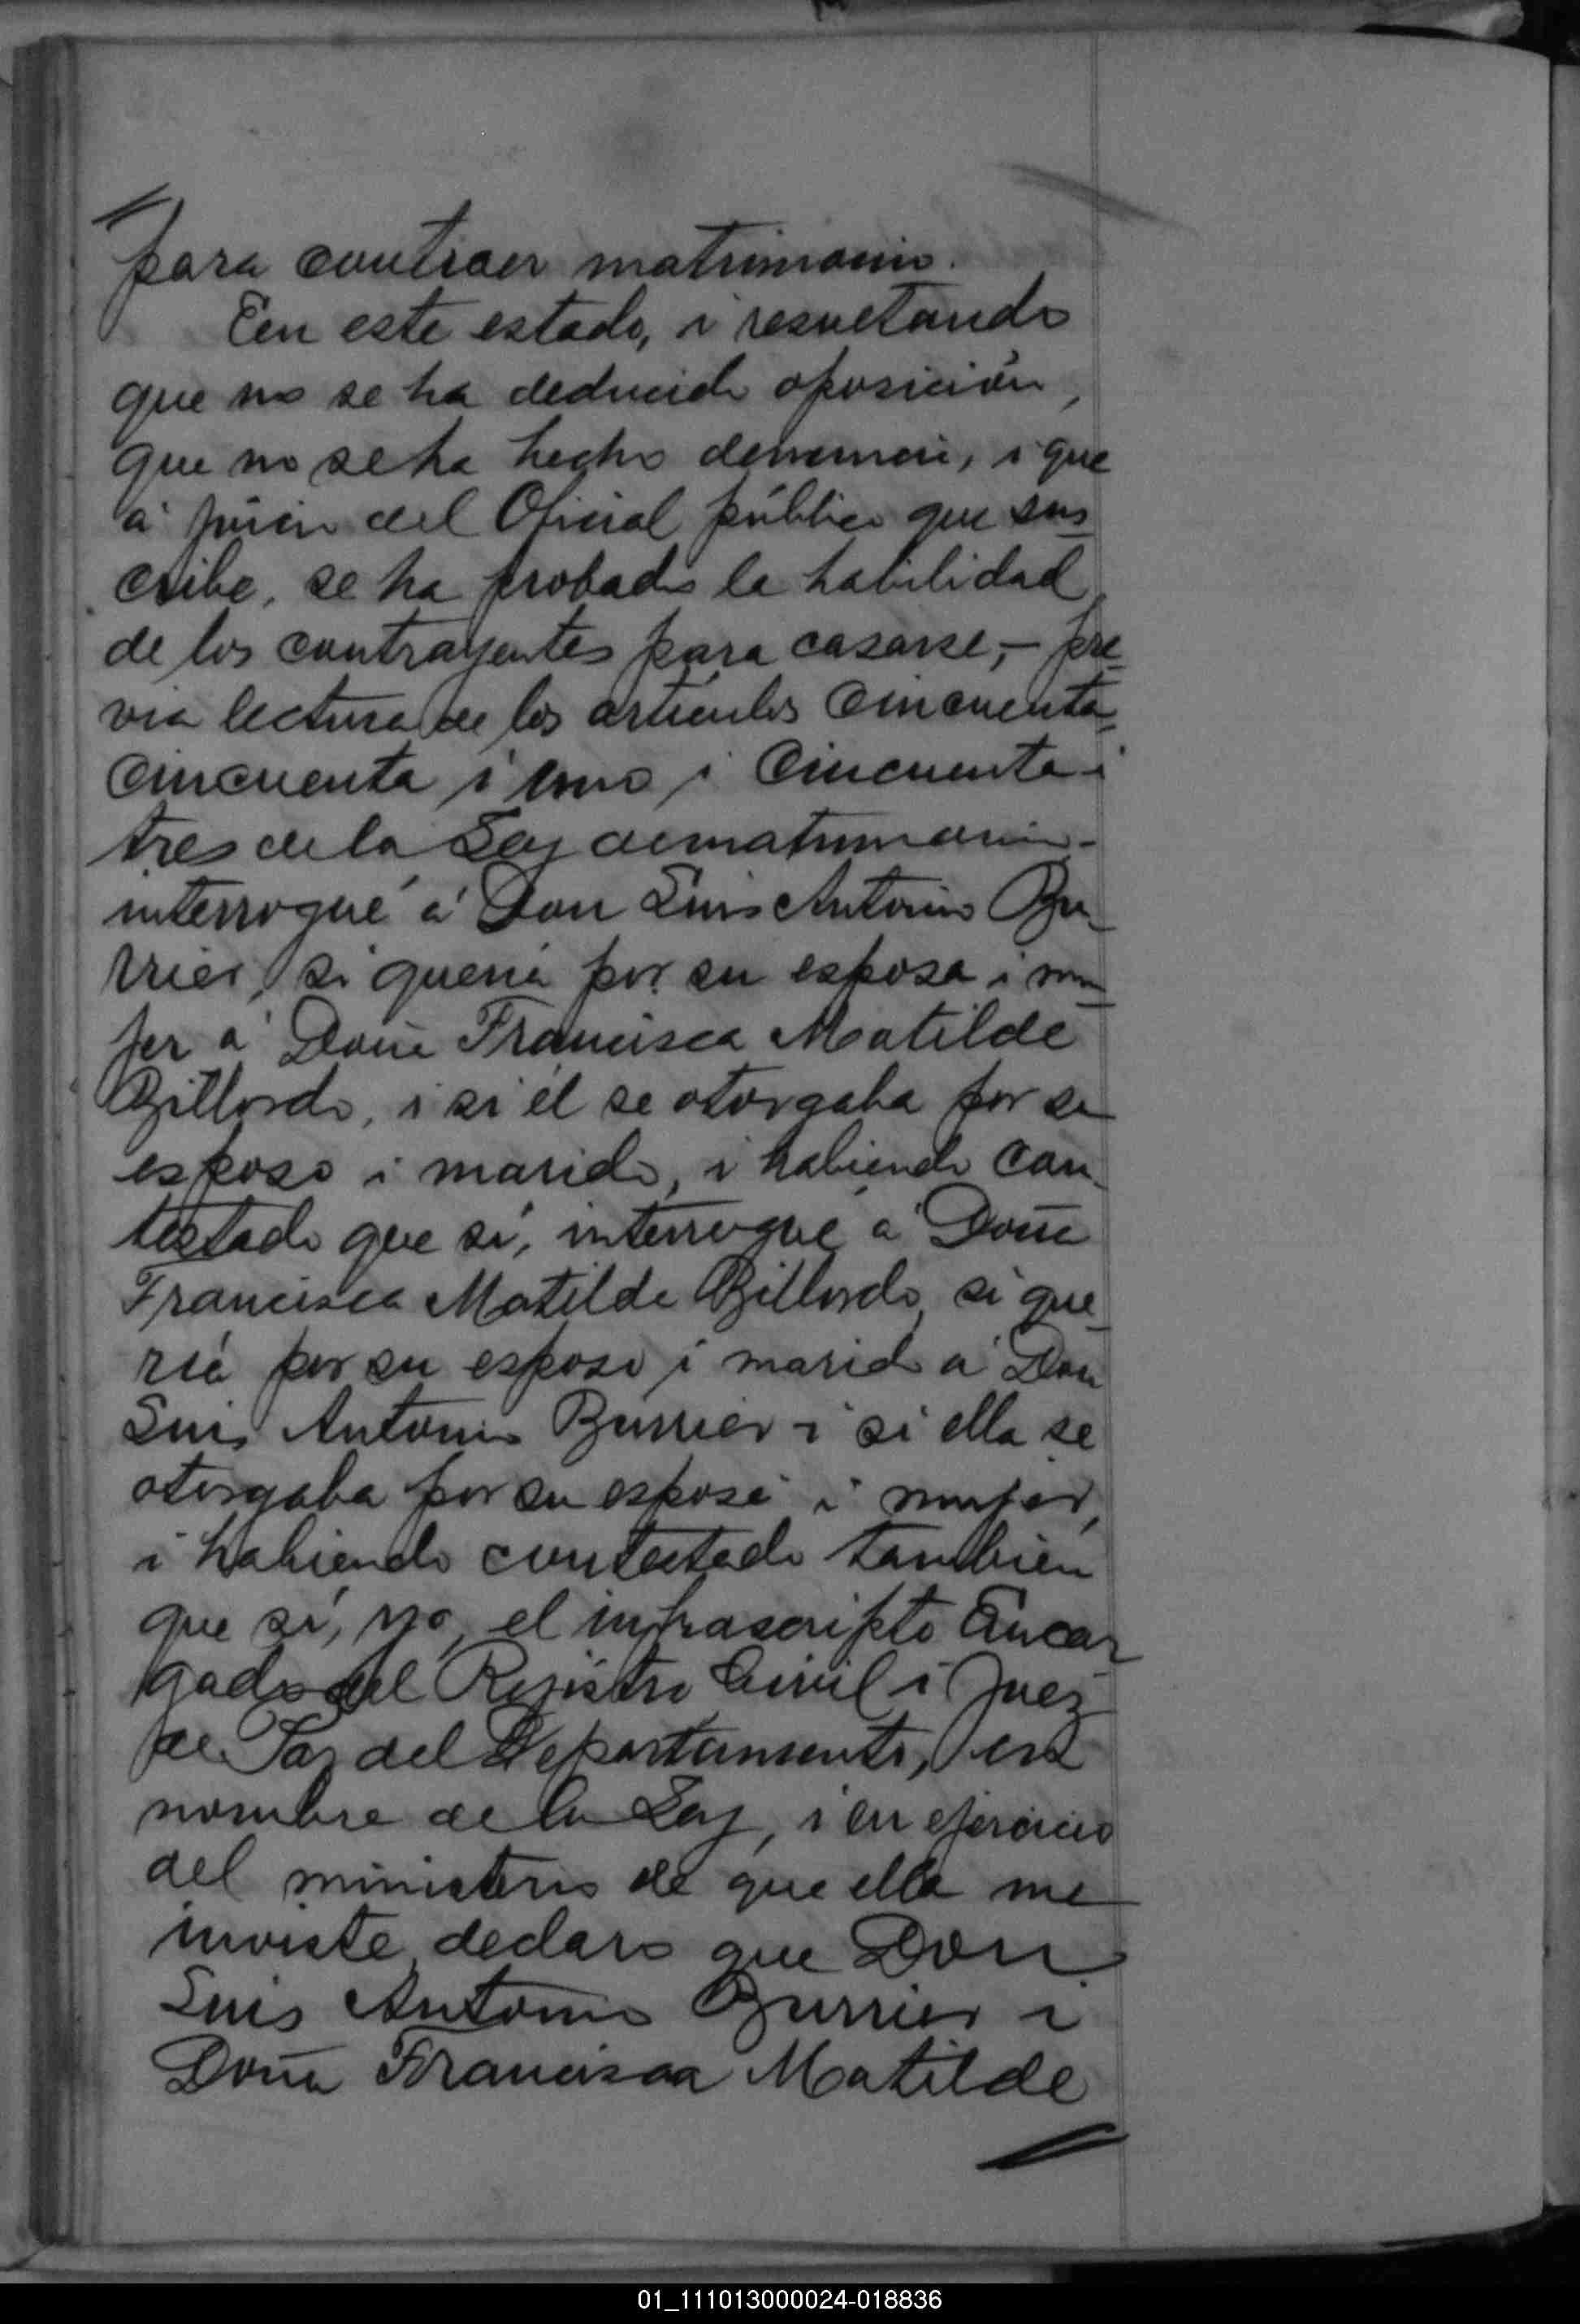 para contraer matrimonio.
En este estado, i resultando
que no se ha deducido oposición,
que no se ha hecho denuncia, i que
á juicio del Oficial público que sus-
cribe, se ha probado la habilidad
de los contrayentes para casarse, - pre-
via lectura de los artículos cincuenta,
cincuenta i uno i cincuenta i
tres de la Ley de matrimonio -
interrogué á Don Luis Antonio Bu-
rrier, si quería por su esposa i mu-
jer á Doña Francisca Matilde
Billordo, i si él se otorgaba por su
esposo i marido, i habiendo con-
testado que sí, interrogué á Doña
Francisca Matilde Billordo, si que-
ría por su esposo i marido á Don
Luis Antonio Burrier i si ella se
otorgaba por su esposa i mujer,
i habiendo contestado también
que sí, yo, el infrascripto Encar
gado del Rejistro Civil i Juez
de Paz del Departamento, en
nombre de la Ley, i en ejercicio
del ministerio de que ella me
inviste, declaro que Don
Luis Antonio Burrier i
Doña Francisca Matilde
01_111013000024-018836